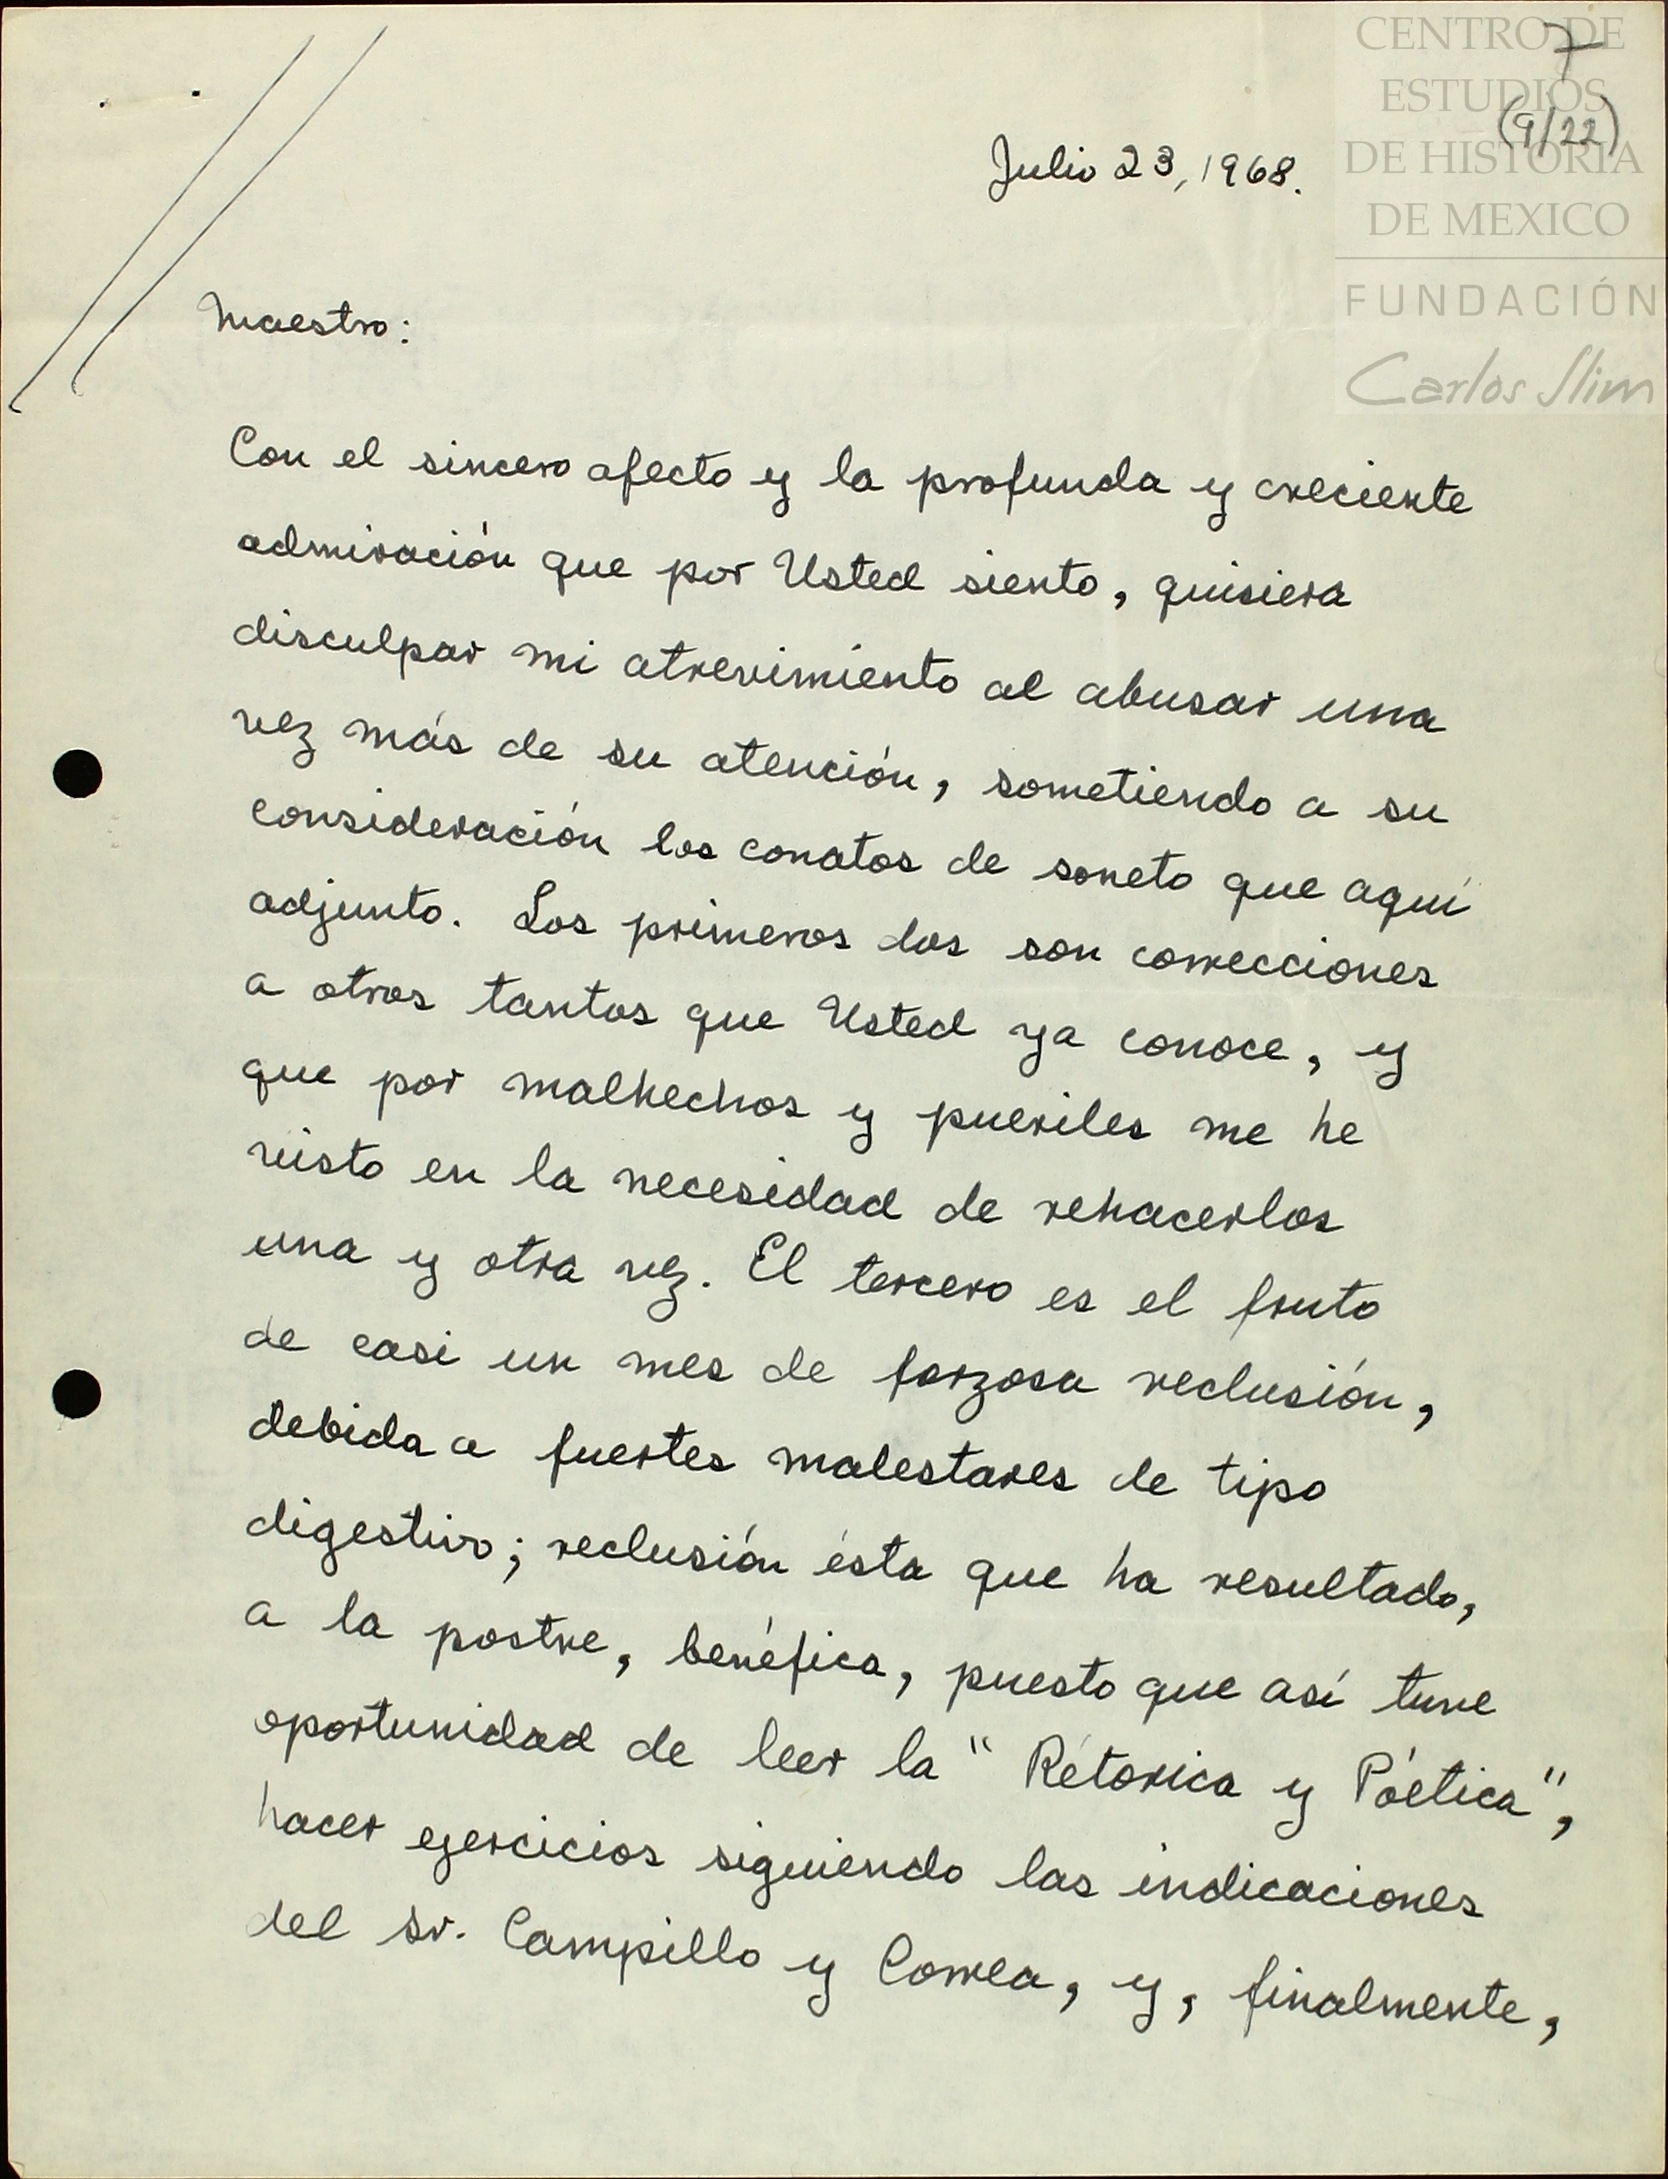 CENTRO DE
ESTUDIOS
DE HISTORIA
DE MEXICO
FUNDACIÓN
Carlos Slim
7
(9/22)
Julio 23, 1968.
Maestro:
Con el sincero afecto y la profunda y creciente
admiración que por Usted siento, quisiera
disculpar mi atrevimiento al abusar una
vez más de su atención, sometiendo a su
consideración los conatos de soneto que aquí
adjunto. Los primeros dos son correcciones
a otros tantos que Usted ya conoce, y
que por malhechos y pueriles me he
visto en la necesidad de rehacerlos
una y otra vez. El tercero es el fruto
de casi un mes de forzosa reclusión,
debida a fuertes malestares de tipo
digestivo; reclusión ésta que ha resultado,
a la postre, benéfica, puesto que así tuve
oportunidad de leer la "Rétorica y Póetica",
hacer ejercicios siguiendo las indicaciones
del Sr. Campillo y Correa, y, finalmente,